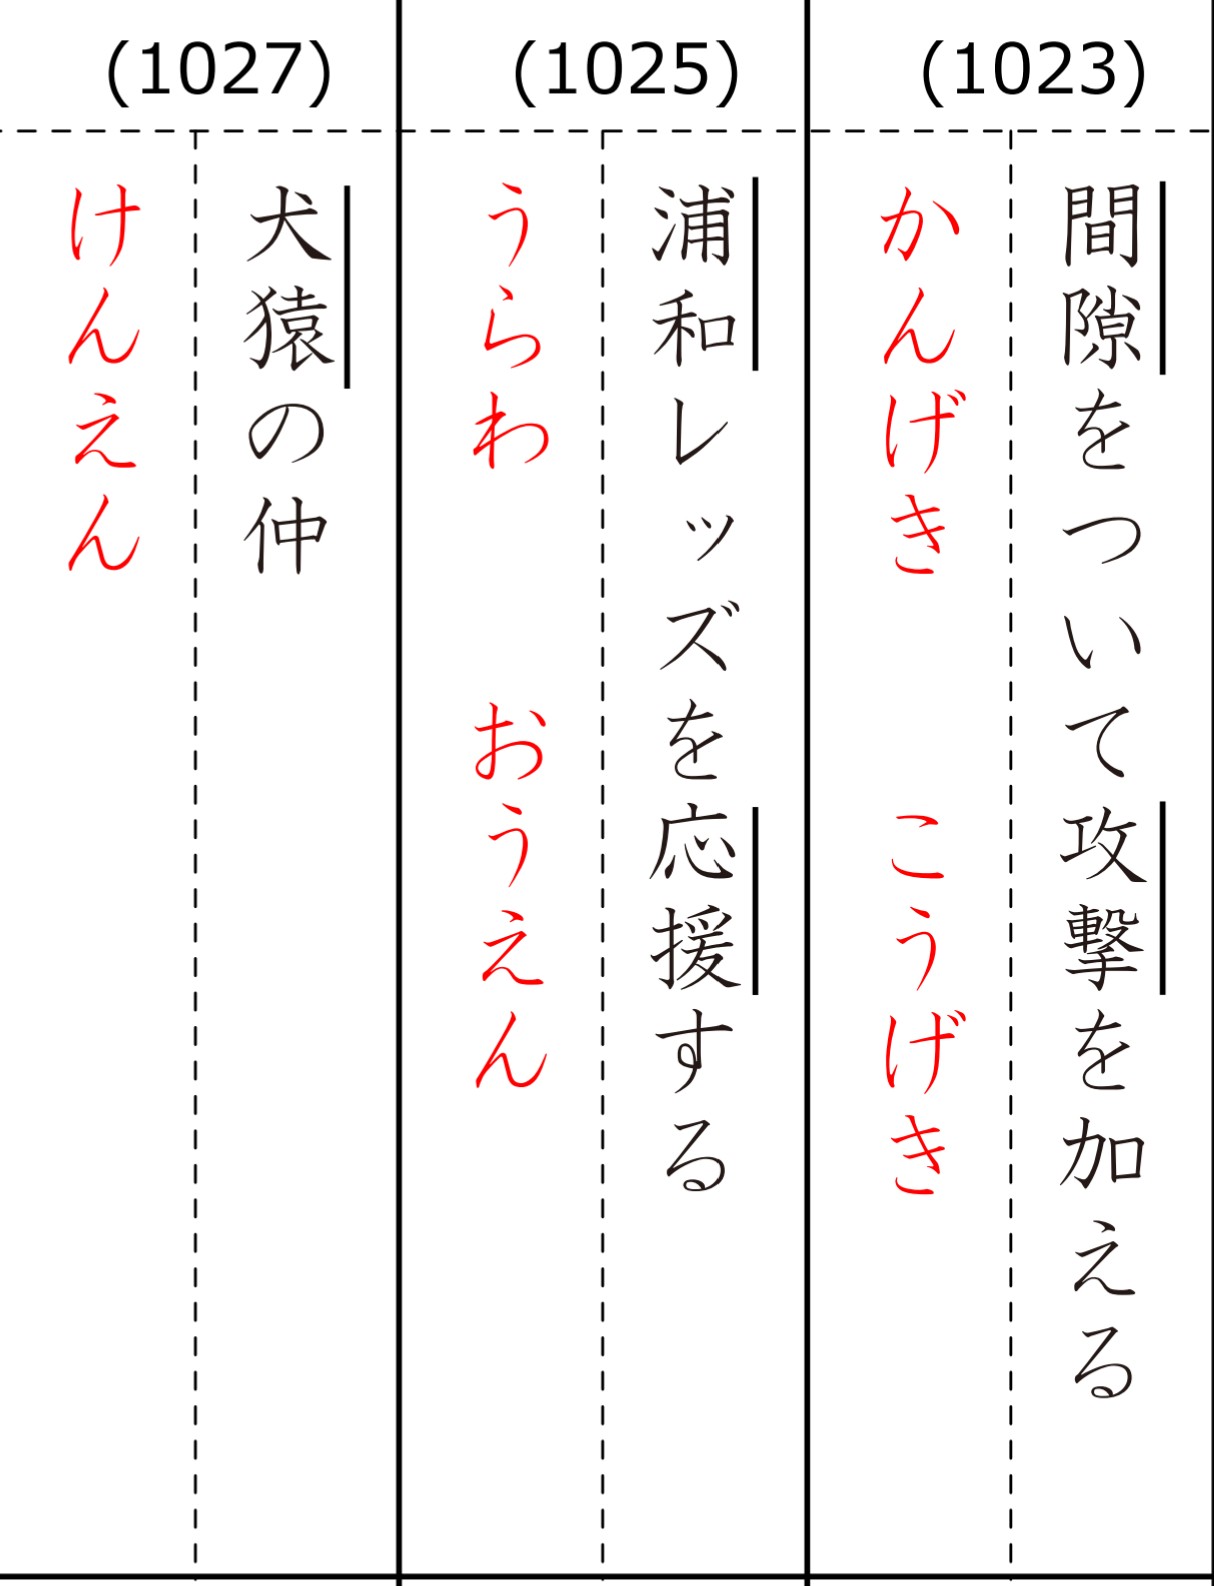 (1023)
間隙をついて攻撃を加える
かんげき こうげき
(1025)
浦和レッズを応援する
うらわ おうえん
(1027)
犬猿の仲
けんえん